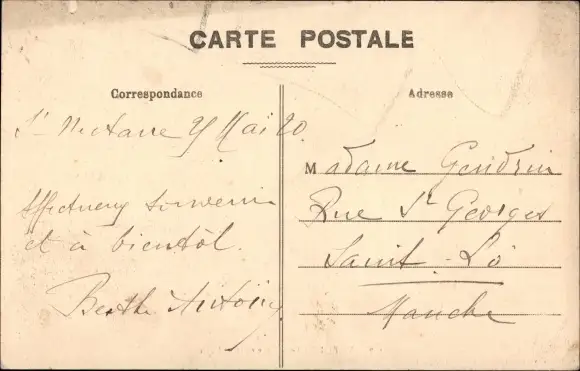 CARTE POSTALE
Correspondance
St Nectaire 25 Mai 20
Affectueux souvenir
et à bientôt.
Berthe
Adresse
Madame Gendrin
Rue St Georges
Saint-Lô
Manche